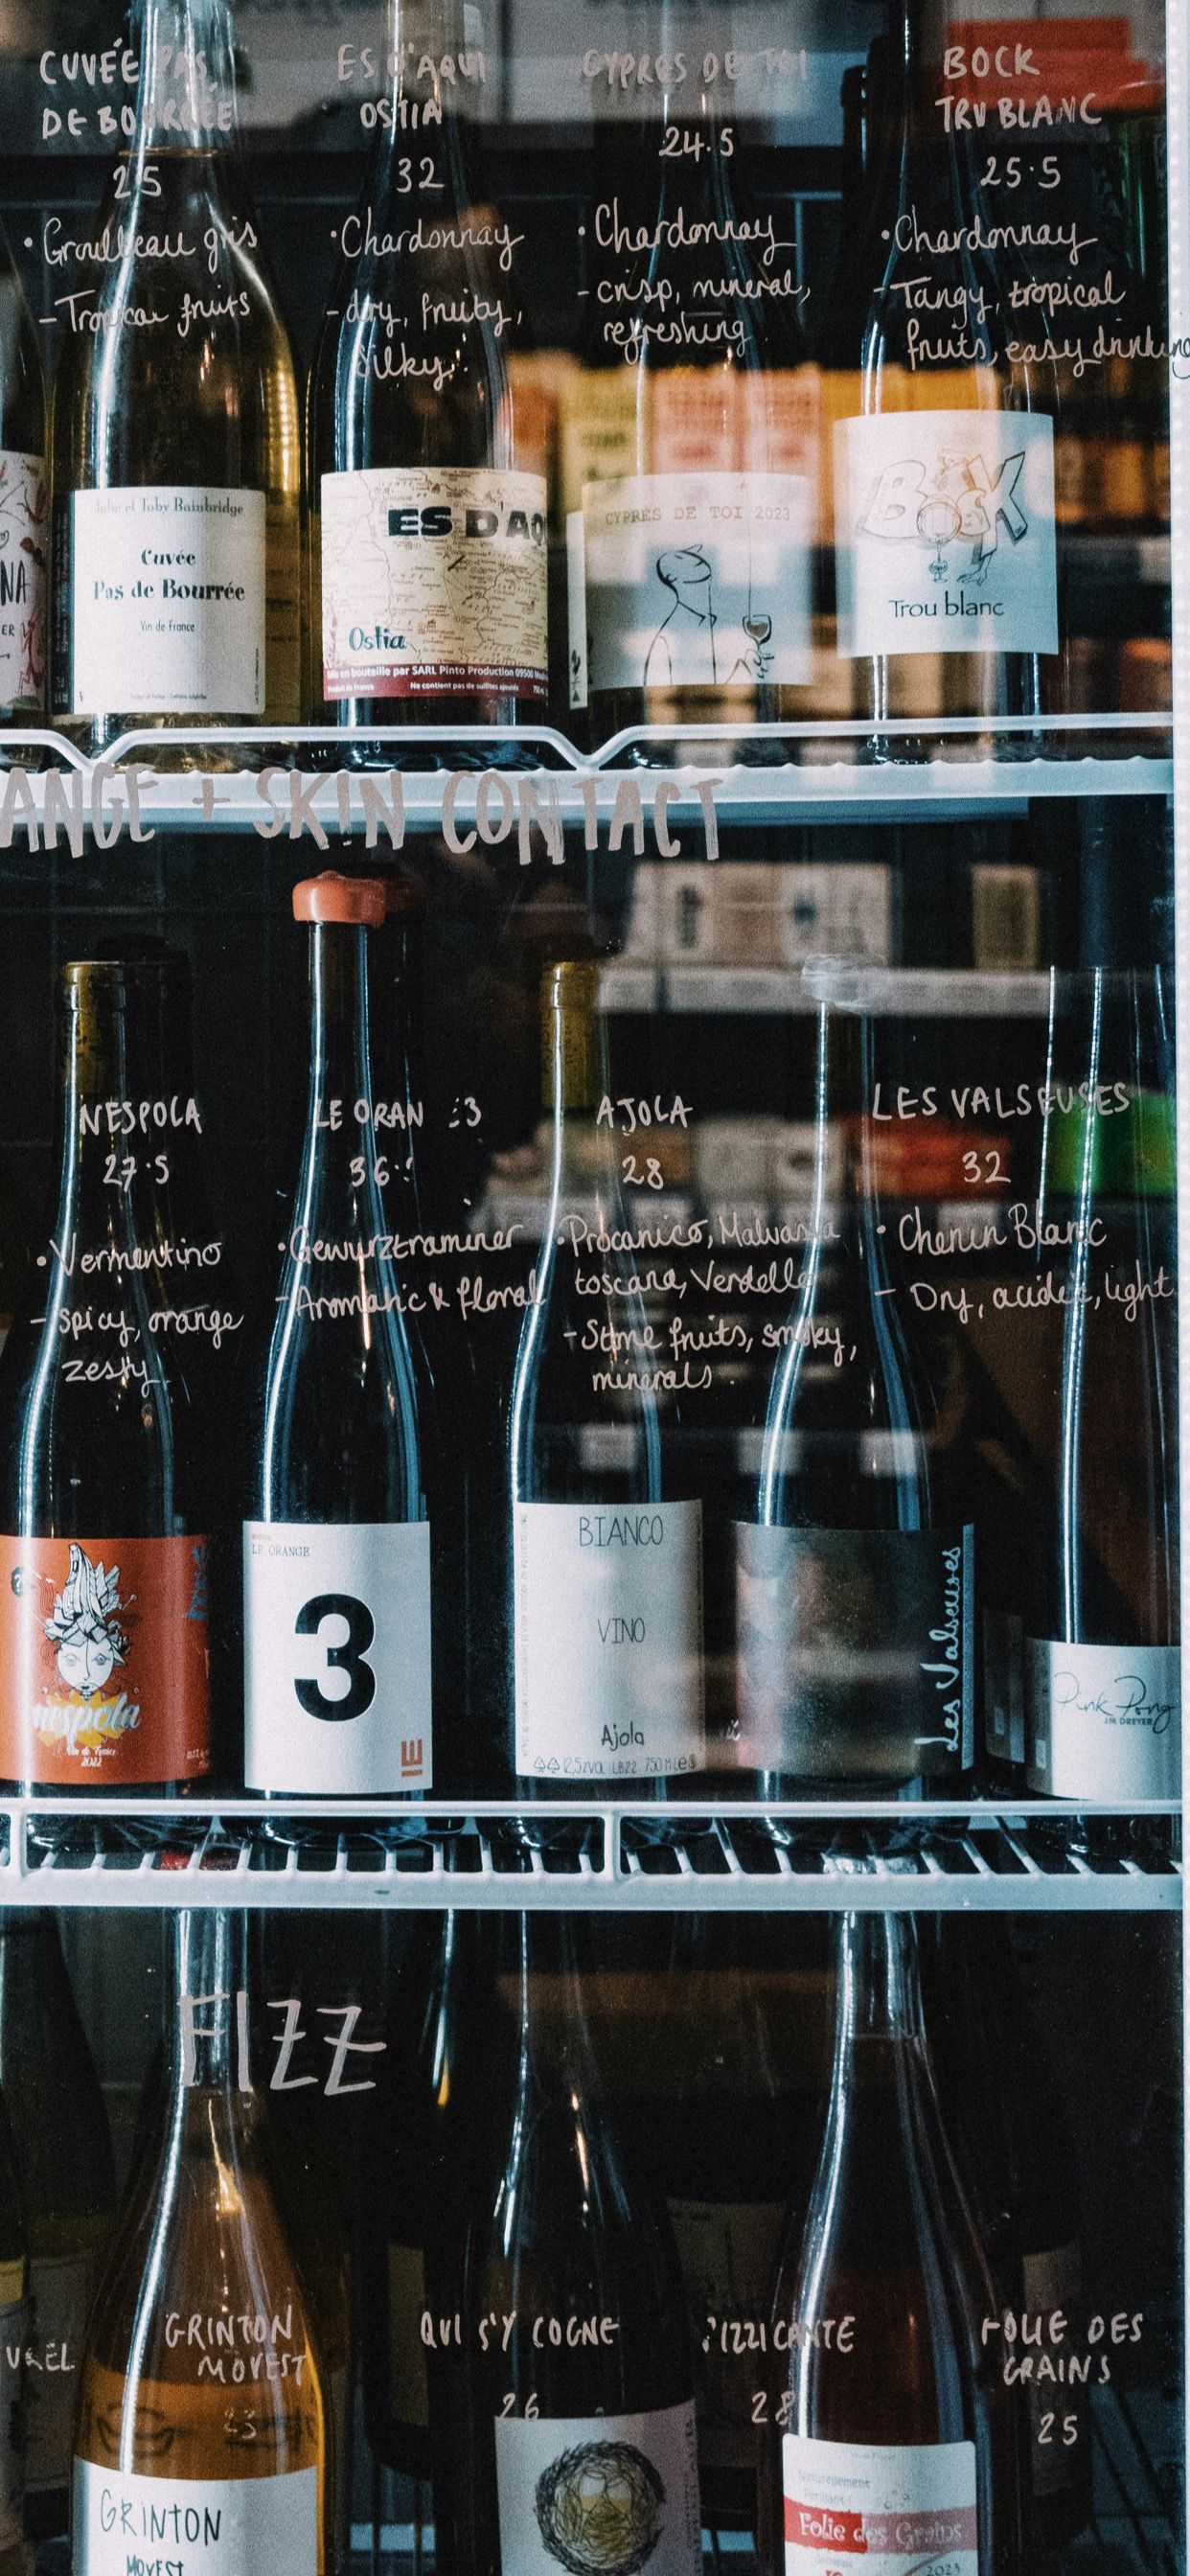 CUVÉE PAS
DE BOURRÉE
25
• Grolleau gris
- Tropical fruits
ES D'AQUI
OSTIA
32
• Chardonnay
- dry, fruity,
silky.
CYPRES DE TOI
24.5
• Chardonnay
- crisp, mineral,
refreshing
BOCK
TRU BLANC
25.5
• Chardonnay
- Tangy, tropical
fruits, easy drinking
NA
ER
Julie et Toby Bainbridge
Cuvée
Pas de Bourrée
Vin de France
ES D'AQ
Ostia
Mis en bouteille par SARL Pinto Production 09500
Produit de France Ne contient pas de sulfites ajoutés
CYPRÈS DE TOI 2023
BOCK
Trou blanc
ANGE + SKIN CONTACT
NESPOLA
27.5
• Vermentino
- spicy, orange
zesty
LE ORAN 3
36
• Gewurztraminer
- Aromatic & floral
AJOLA
28
• Procanico, Malvasia
toscana, Verdello
- Stone fruits, smoky,
minerals.
LES VALSEUSES
32
• Chenin Blanc
- Dry, acidic, light
nespola
Vin de France
2022
LE ORANGE
3
BIANCO
VINO
Ajola
12,5%VOL LB22 750MLe
Les Valseuses
Pink Pong
J.M. DREYER
FIZZ
GRINTON
MOVEST
23
QUI S'Y COGNE
26
PIZZICANTE
28
FOLIE DES
GRAINS
25
GRINTON
MOVEST
Naturellement
Pétillant
Folie des Grains
2023